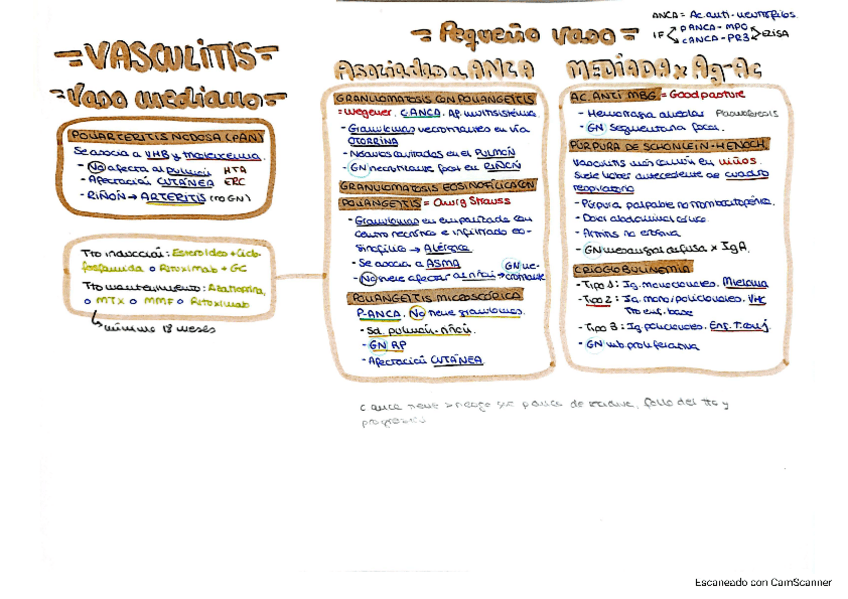 =VASCULITIS=
=Vaso mediano=
POLIARTERITIS NODOSA (PAN)
Se asocia a VHB y tricoleucemia.
- No afecta al pulmón HTA
- Afectación CUTÁNEA ERC
- RIÑÓN → ARTERITIS (no GN)
Tto inducción: Esteroideo + Ciclo-
fosfamida o Rituximab + GC
Tto mantenimiento: Azatioprina,
o MTX o MMF o Rituximab
↳ mínimo 18 meses
=Pequeño vaso=
ANCA = Ac. anti-neutrófilos
IF pANCA-MPO ELISA
cANCA-PR3
ASOCIADO a ANCA
GRANULOMATOSIS CON POLIANGEITIS
=Wegener. CANCA. Ap. multisistémica.
- Granulomas necrotizantes en vía
OTORRINA
- Nódulos cavitados en el PULMÓN
- GN necrotizante focal en RIÑÓN
GRANULOMATOSIS EOSINOFÍLICA CON
POLIANGEITIS = Churg Strauss
- Granulomas en empalizada con
centro necrótico e infiltrado eo-
sinofílico → Alérgica
- Se asocia a ASMA
- No suele afectar al riñón → GN ne-
crotizante
POLIANGEITIS MICROSCÓPICA
P-ANCA. No tiene granulomas.
- Sd. pulmón-riñón.
- GN RP
- Afectación CUTÁNEA
MEDIADA x Ag-Ac
AC. ANTI MBG = Goodpasture
- Hemorragia alveolar
- GN segmentaria focal.
PÚRPURA DE SCHONLEIN-HENOCH
Vasculitis más común en niños.
Suele haber antecedente de cuadro
respiratorio
- Púrpura palpable no trombocitopénica.
- Dolor abdominal cólico
- Artritis no erosiva
- GN mesangial difusa x IgA.
CRIOGLOBULINEMIA
- Tipo 1: Ig. monoclonales. Mieloma
- Tipo 2: Ig. mono/policlonales. VHC
Tto enf. base
- Tipo 3: Ig policlonales. Enf. T. conj.
- GN mb proliferativa
- c anca tiene > riesgo que panca de recidiva, fallo del tto y
progresión
Escaneado con CamScanner